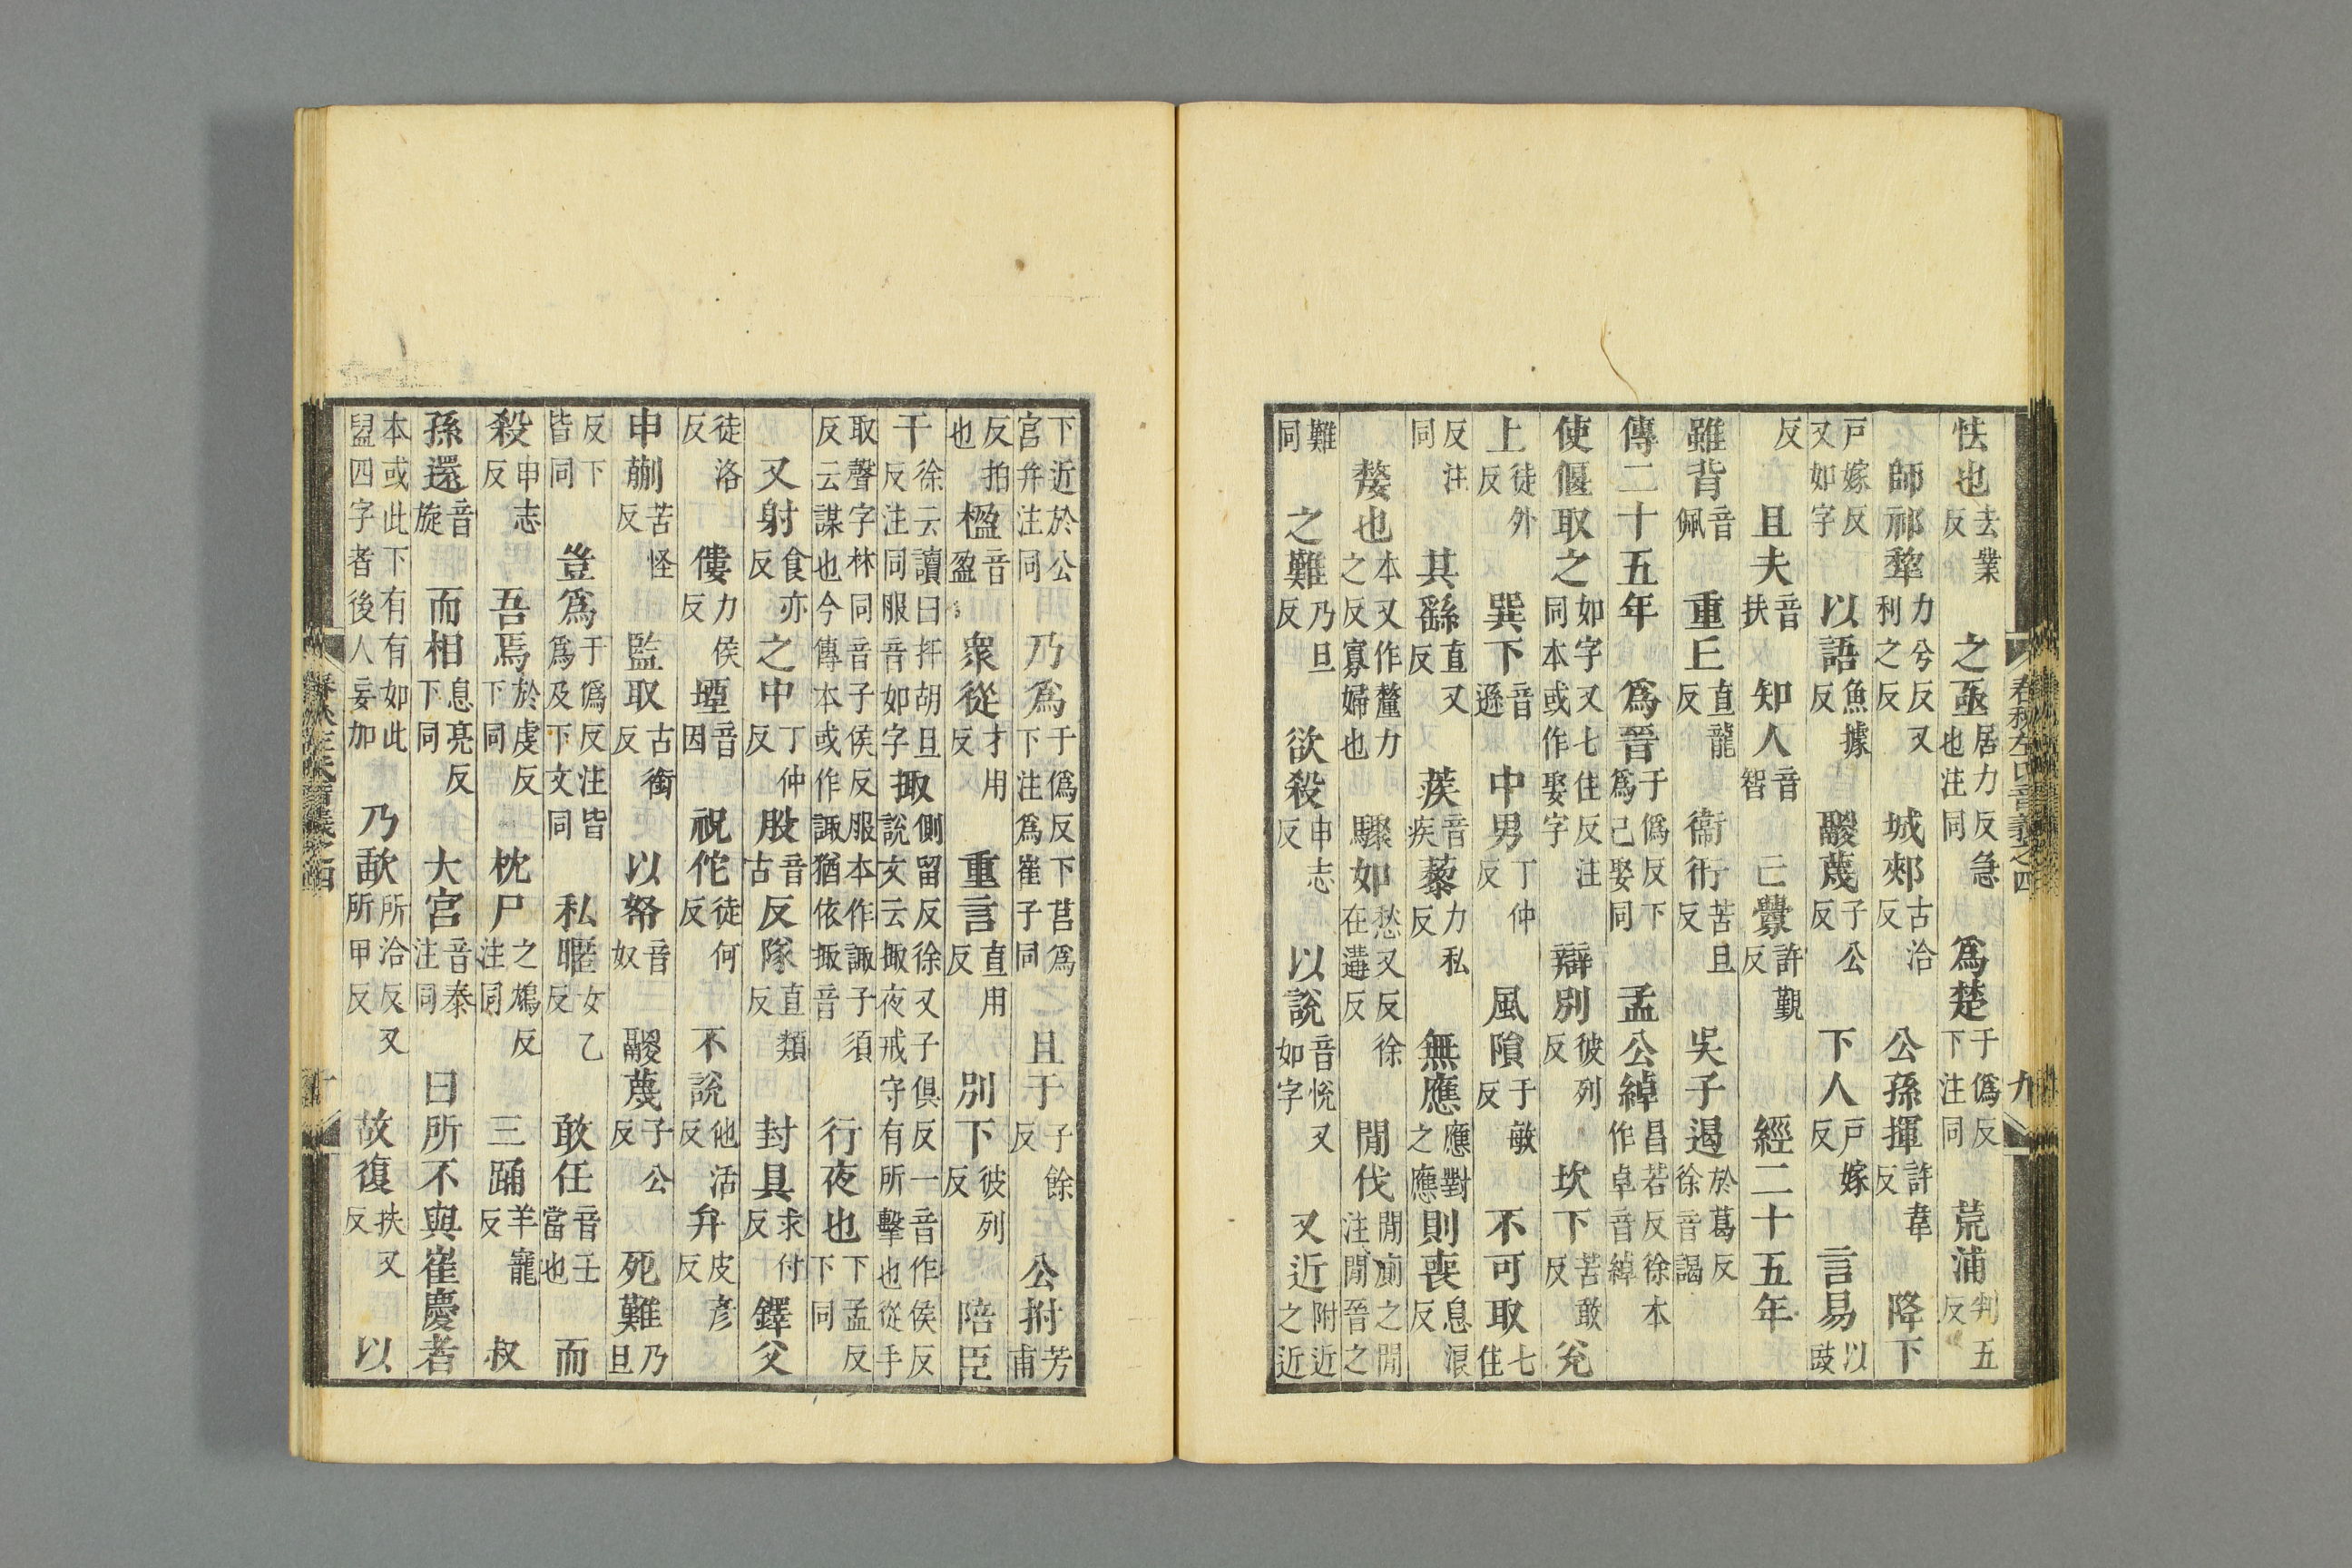 春秋左氏音義之四 九
怯也去業反 之亟居力反急也注同 爲楚于僞反下注同 荒浦判五反
師祁犂力兮反又利之反 城郟古洽反 公孫揮許韋反 降下
戶嫁反又如字 以語魚據反 鬷蔑子公反 下人戶嫁反 言易以豉
反 且夫音扶 知人音智 己釁許覲反 經二十五年
雖背音佩 重丘直龍反 衞衎苦旦反 吳子遏於葛反徐音謁
傳二十五年 爲晉于僞反下爲己娶同 孟公綽昌若反徐本作卓音綽
使偃取之如字又七住反注同本或作娶字 辯別彼列反 坎下苦敢反 兊
上徒外反 巽下音遜 中男丁仲反 風隕于敏反 不可取七住
反注同 其繇直又反 蒺音疾 藜力私反 無應應對之應 則喪息浪反
嫠也本又作釐力之反寡婦也 驟如愁又反徐在遘反 閒伐閒廁之閒注閒晉之
難同 之難乃旦反 欲殺申志反 以說音悅又如字 又近附近之近
下近於公宮弁注同 乃爲于僞反下莒爲下注爲崔子同 且于子餘反 公拊芳甫
反拍也 楹音盈 衆從才用反 重言直用反 別下彼列反 陪臣
干徐云讀曰扞胡旦反注同服音如字 掫側留反徐又子俱反一音作侯反說文云掫夜戒守有所擊也從手
取聲字林同音子侯反服本作諏子須反云謀也今傳本或作諏猶依掫音 行夜也下孟反下同
又射食亦反 之中丁仲反 股音古 反隊直類反 封具求付反 鐸父
徒洛反 僂力侯反 堙音因 祝佗徒何反 不說他活反 弁皮彥反
申蒯苦怪反 監取古銜反 以帑音奴 鬷蔑子公反 死難乃旦
反下皆同 豈爲于僞反注皆爲及下文同 私暱女乙反 敢任音壬當也 而
殺申志反 吾焉於虔反下同 枕尸之鴆反注同 三踊羊寵反 叔
孫還音旋 而相息亮反下同 大宮音泰注同 曰所不與崔慶者
本或此下有有如此盟四字者後人妄加 乃歃所洽反又所甲反 故復扶又反 以
春秋左氏音義之四 十